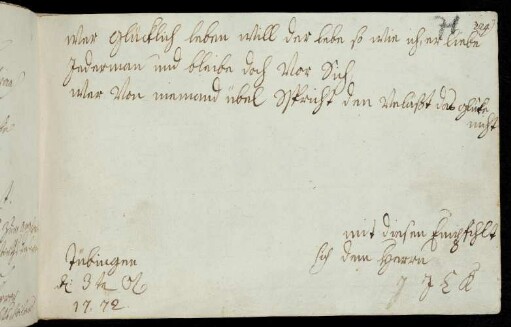 Wer Glücklich leben will der lebe so wie ich, er liebe
Jederman und bleibe doch Vor Sich,
Wer Von niemand übel Spricht den Verlaßt das glüke
nicht
mit diesen Empfehlt
sich dem Herrn
J J C K
Tübingen
d 3 te
17.72.